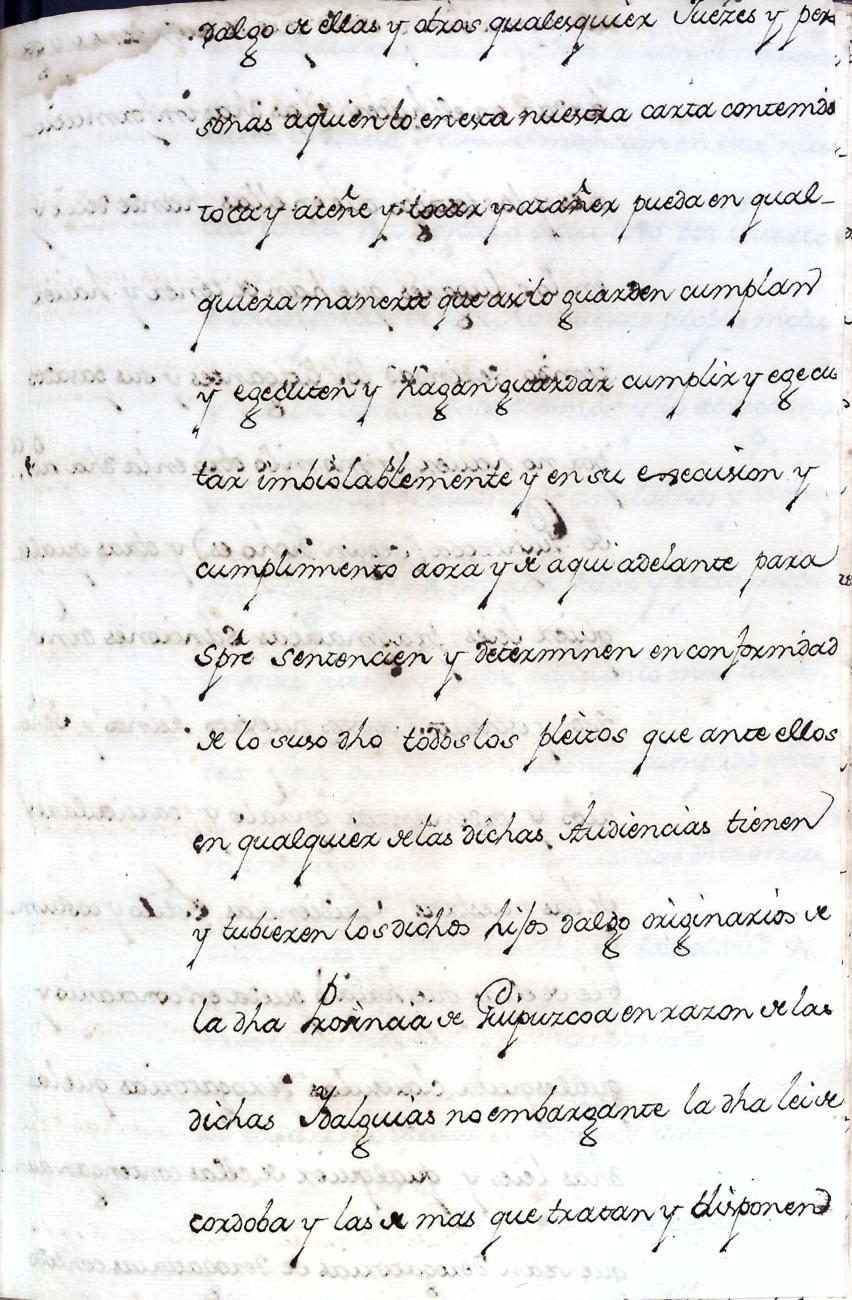 dalgo de ellas y otros qualesquier Juezes y per
sonas aquien lo en esta nuestra carta contenido
toca y ateñe y tocar y atañer pueda en qual-
quiera manera que asilo guarden cumplan
y egecuten y hagan guardar cumplir y egecu
tar imbiolablemente y en su execusion y
cumplimiento aora y de aqui adelante para
spre sentencien y determinen en conformidad
de lo suso dho todos los pleitos que ante ellos
en qualquier de las dichas Audiencias tienen
y tubieren los dichos hijos dalgo originarios de
la dha Provincia de Guipuzcoa en razon de las
dichas Ydalguias no embargante la dha lei de
cordoba y las de mas que tratan y disponen